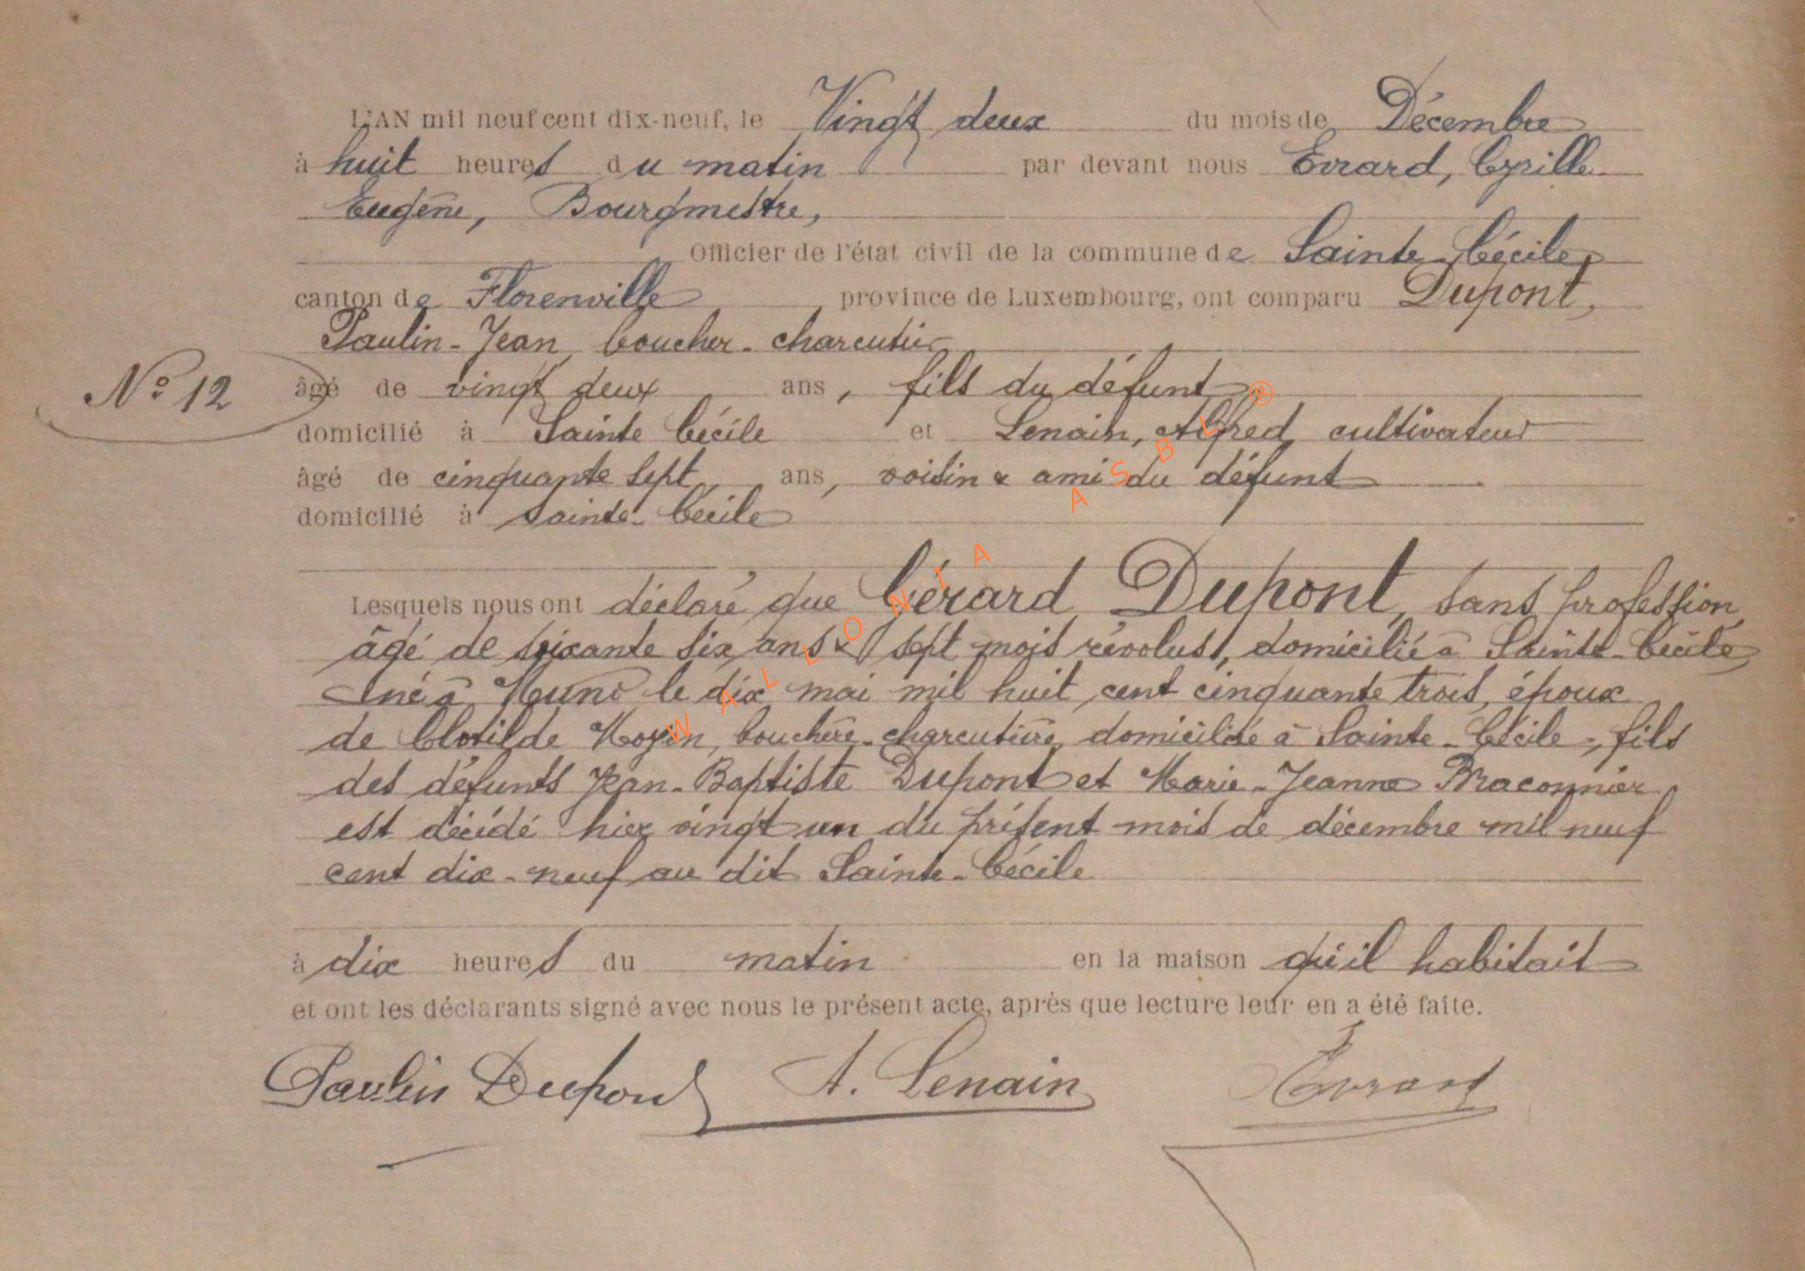 L'AN mil neuf cent dix-neuf, le Vingt deux du mois de Décembre
à huit heures du matin par devant nous Evrard, Cyrille
Eugène, Bourgmestre,
Officier de l'état civil de la commune de Sainte-Cécile
canton de Florenville, province de Luxembourg, ont comparu Dupont,
Paulin-Jean, boucher-charcutier
Nº 12
âgé de vingt deux ans, fils du défunt
domicilié à Sainte Cécile et Lenain, Alfred, cultivateur
âgé de cinquante sept ans, voisin & ami du défunt
domicilié à Sainte-Cécile
Lesquels nous ont déclaré que Gérard Dupont, sans profession
âgé de soixante six ans & sept mois révolus, domicilié à Sainte-Cécile
né à Muno le dix mai mil huit cent cinquante trois, époux
de Clotilde bouchère-charcutière, domiciliée à Sainte-Cécile-, fils
des défunts Jean-Baptiste Dupont et Marie-Jeanne Braconnier
est décédé hier vingt un du présent mois de décembre mil neuf
cent dix-neuf au dit Sainte-Cécile
à dix heures du matin en la maison qu'il habitait
et ont les déclarants signé avec nous le présent acte, après que lecture leur en a été faite.
Paulin Dupont A. Lenain Evrard
WALLONIA ASBL ®